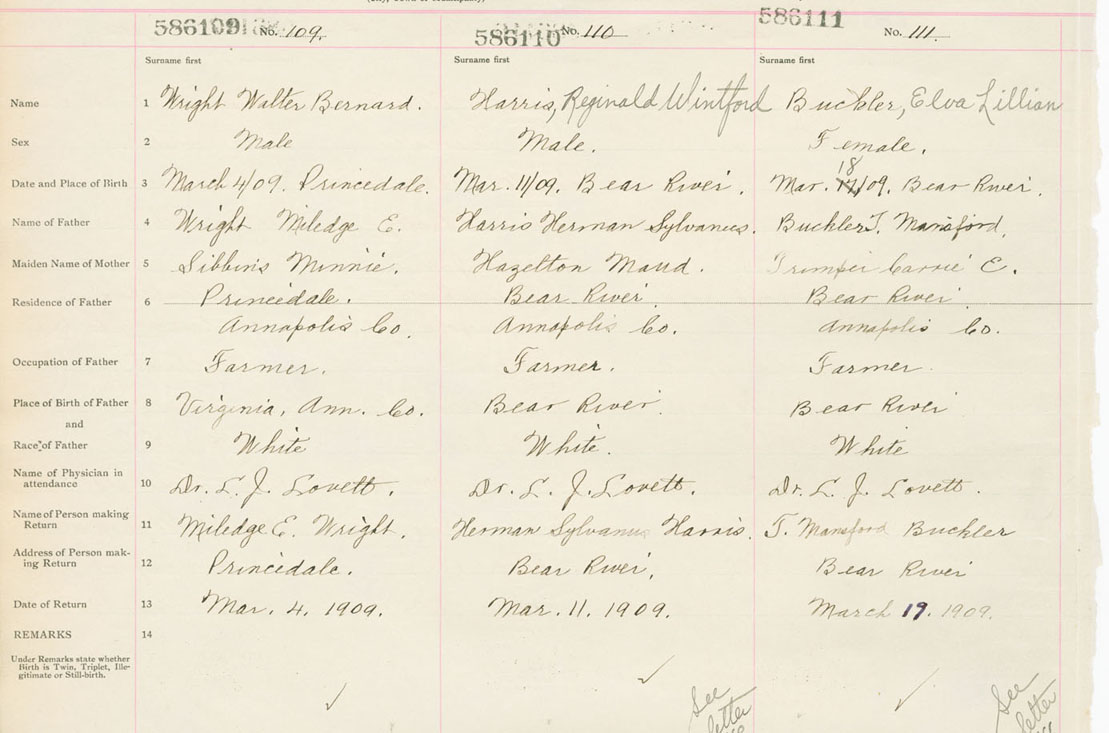 (City, Town or Municipality)
586109 No. 109. 586110 No. 110 586111 No. 111.
Surname first Surname first Surname first
Name 1 Wright Walter Bernard. Harris, Reginald Wintford Buckler, Elva Lillian
Sex 2 Male Male. Female.
18
Date and Place of Birth 3 March 4/09. Princedale. Mar. 11/09. Bear River. Mar. 17/09. Bear River.
Name of Father 4 Wright Miledge E. Harris Herman Sylvanus. Buckler T. Mansford.
Maiden Name of Mother 5 Sibbins Minnie. Hazelton Maud. Trimper Carrie E.
Residence of Father 6 Princedale. Bear River. Bear River
Annapolis Co. Annapolis Co. Annapolis Co.
Occupation of Father 7 Farmer. Farmer. Farmer.
Place of Birth of Father 8 Virginia, Ann. Co. Bear River. Bear River
and
Race of Father 9 White White. White
Name of Physician in
attendance 10 Dr. L. J. Lovett. Dr. L. J. Lovett. Dr. L. J. Lovett.
Name of Person making
Return 11 Miledge E. Wright. Herman Sylvanus Harris. T. Mansford Buckler
Address of Person mak-
ing Return 12 Princedale. Bear River. Bear River
Date of Return 13 Mar. 4. 1909. Mar. 11. 1909. March 19. 1909.
REMARKS 14
Under Remarks state whether
Birth is Twin, Triplet, Ille-
gitimate or Still-birth.
See See
letter letter